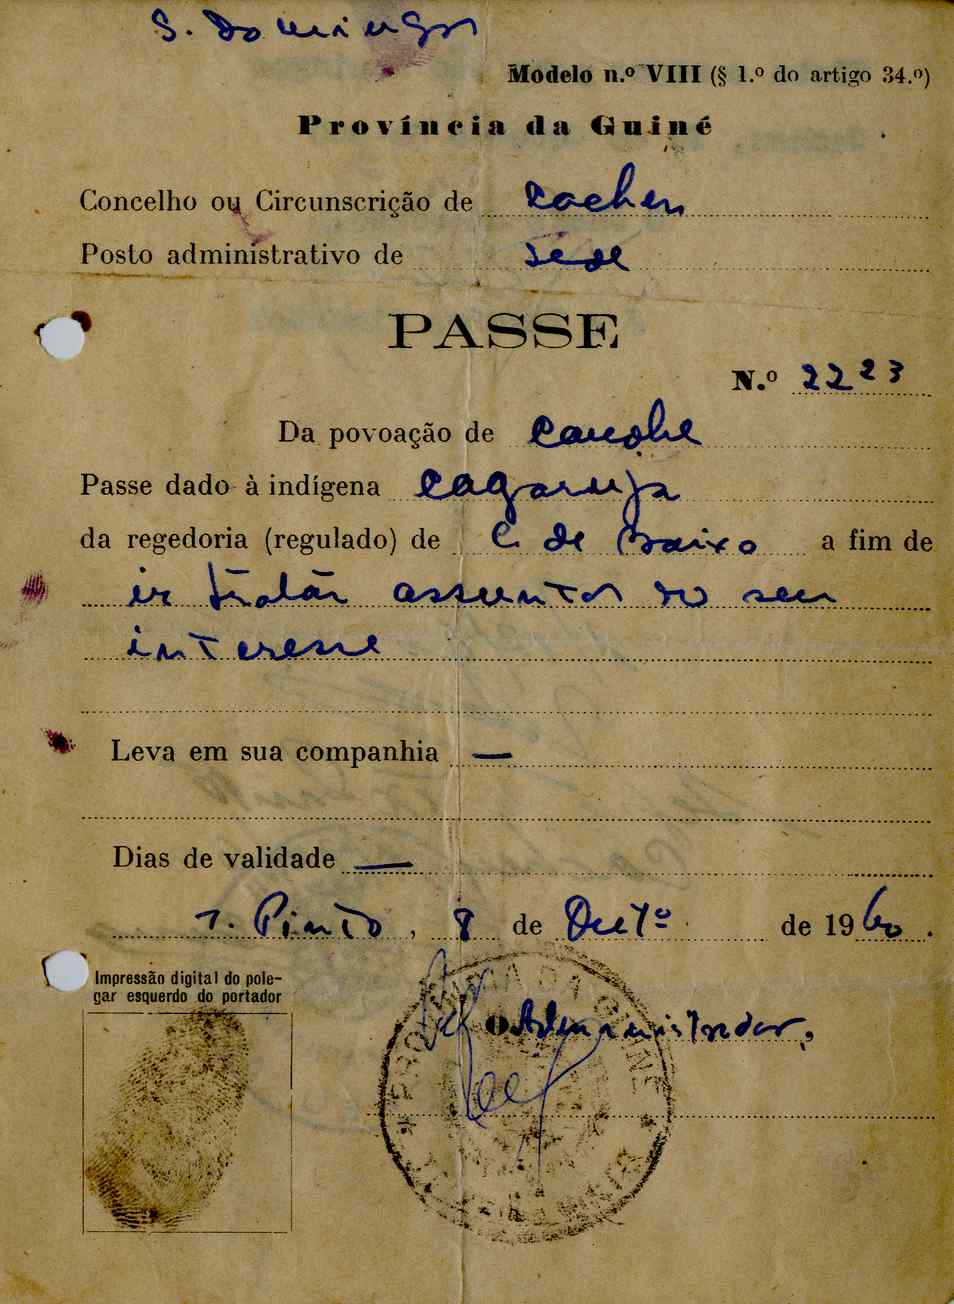 S. Domingos
Modelo n.º VIII (§ 1.º do artigo 34.º)
Província da Guiné
Concelho ou Circunscrição de Cacheu
Posto administrativo de Sede
PASSE
N.º 2223
Da povoação de
Passe dado à indígena
da regedoria (regulado) de C. de Baixo a fim de
ir tratar assuntos do seu
interesse
Leva em sua companhia —
Dias de validade —
T. Pinto, 8 de Outº de 1960.
Impressão digital do pole-
gar esquerdo do portador
O Administrador,
PROVINCIA DA GUINÉ